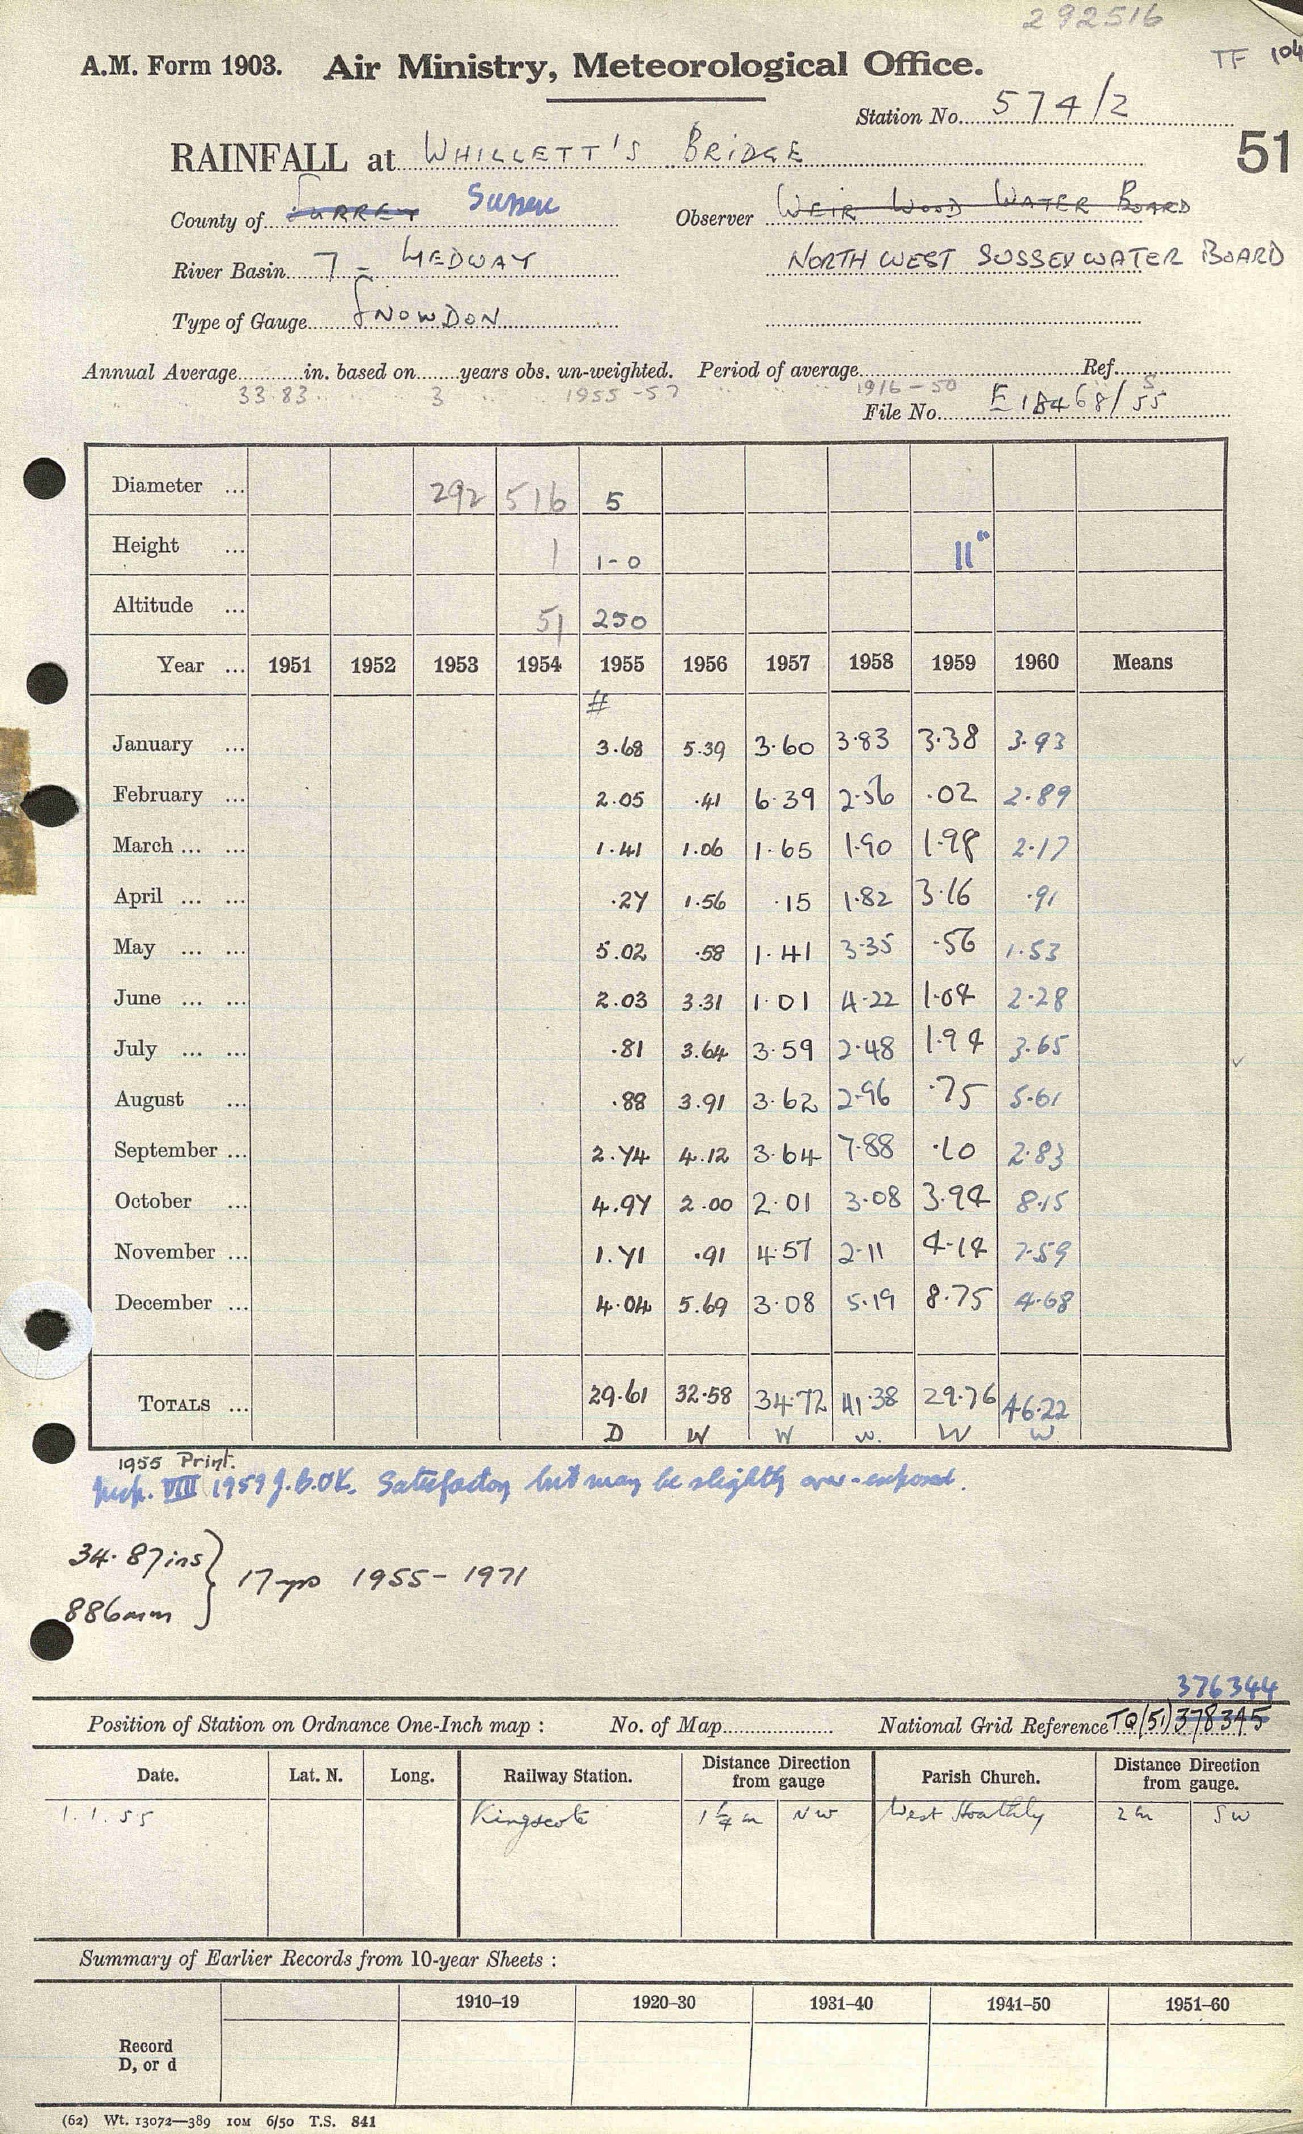 292516
TF 104
A.M. Form 1903. Air Ministry, Meteorological Office.
Station No. 574/2
51
RAINFALL at WHILLETT'S BRIDGE
County of SURREY Sussex Observer WEIR WOOD WATER BOARD
River Basin 7 - MEDWAY NORTH WEST SUSSEX WATER BOARD
Type of Gauge SNOWDON
Annual Average in. based on years obs. un-weighted. Period of average Ref.
33.83 3 1955-57 1916-50
File No. E18468/55 5
Diameter ... 292 516 5
Height ... 1 1-0 11"
Altitude ... 51 250
Year ... 1951 1952 1953 1954 1955 1956 1957 1958 1959 1960 Means
#
January ... 3.68 5.39 3.60 3.83 3.38 3.93
February ... 2.05 .41 6.39 2.56 .02 2.89
March ... ... 1.41 1.06 1.65 1.90 1.98 2.17
April ... ... .27 1.56 .15 1.82 3.16 .91
May ... ... 5.02 .58 1.41 3.35 .56 1.53
June ... ... 2.03 3.31 1.01 4.22 1.04 2.28
July ... ... .81 3.64 3.59 2.48 1.94 3.65
August ... .88 3.91 3.62 2.96 .75 5.61
September ... 2.74 4.12 3.64 7.88 .10 2.83
October ... 4.97 2.00 2.01 3.08 3.94 8.15
November ... 1.71 .91 4.57 2.11 4.14 7.59
December ... 4.04 5.69 3.08 5.19 8.75 4.68
TOTALS ... 29.61 32.58 34.72 41.38 29.76 46.22
D W W W. W W
1955 Print.
Insp. VIII 1959 J.B.OK. Satisfactory but may be slightly over-exposed.
34.87ins } 17 yrs 1955-1971
886mm
376344
Position of Station on Ordnance One-Inch map : No. of Map National Grid Reference TQ(51)378345
Date. Lat. N. Long. Railway Station. Distance Direction from gauge Parish Church. Distance Direction from gauge.
1.1.55 Kingscote 1¼ m NW West Hoathly 2m SW
Summary of Earlier Records from 10-year Sheets :
1910–19 1920–30 1931–40 1941–50 1951–60
Record
D, or d
(62) Wt. 13072—389 10M 6/50 T.S. 841